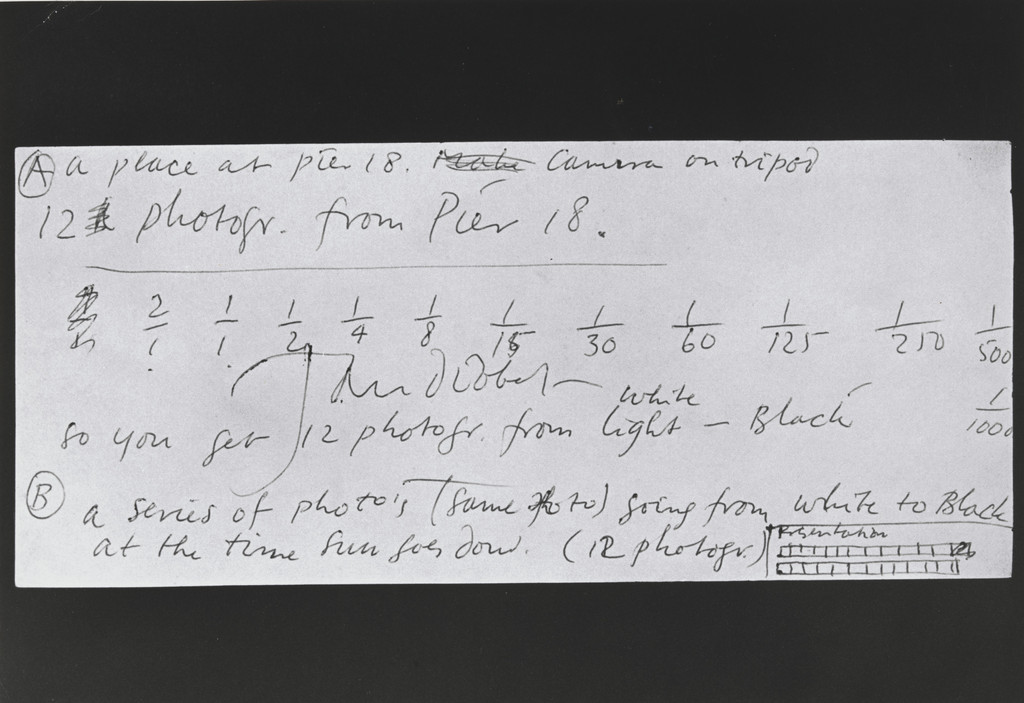 A a place at pier 18. Camera on tripod
12 photogr. from Pier 18.
2/1 1/1 1/2 1/4 1/8 1/15 1/30 1/60 1/125 1/250 1/500
Jan Dibbets
white
1/1000
so you get 12 photogr. from light — Black
B a series of photo's (same foto) going from white to Black
at the time sun goes down. (12 photogr.)
Presentation